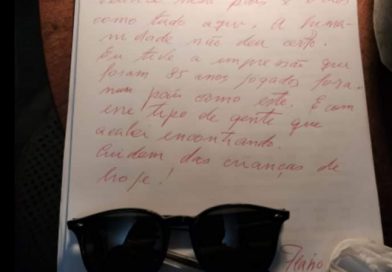 neste país é o caos
como tudo aqui. A huma-
nidade não deu certo.
Eu tive a impressão que
foram 85 anos jogados fora
num país como este. E com
esse tipo de gente que
acabei encontrando.
Cuidem das crianças de
hoje!
Flávio